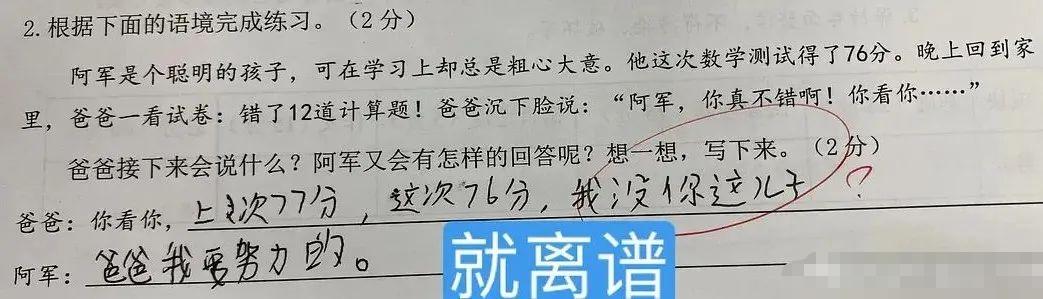 2.根据下面的语境完成练习。(2分)
阿军是个聪明的孩子，可在学习上却总是粗心大意。他这次数学测试得了76分。晚上回到家
里，爸爸一看试卷：错了12道计算题！爸爸沉下脸说：“阿军，你真不错啊！你看你……”
爸爸接下来会说什么？阿军又会有怎样的回答呢？想一想，写下来。(2分)
爸爸：你看你，上次77分，这次76分，我没你这儿子 ?
阿军：爸爸我要努力的。
就离谱